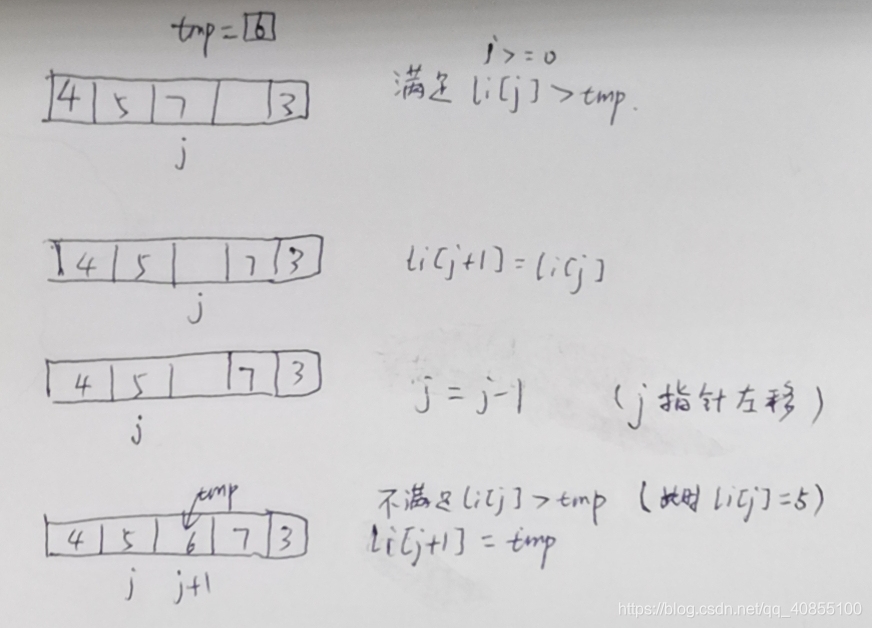 tmp = 6
j >= 0
4 5 7 3
满足 li[j] > tmp.
j
4 5 7 3
li[j+1] = li[j]
j
4 5 7 3
j = j-1 (j指针左移)
j
tmp
不满足 li[j] > tmp (此时 li[j] = 5)
4 5 6 7 3
li[j+1] = tmp
j j+1
https://blog.csdn.net/qq_40855100